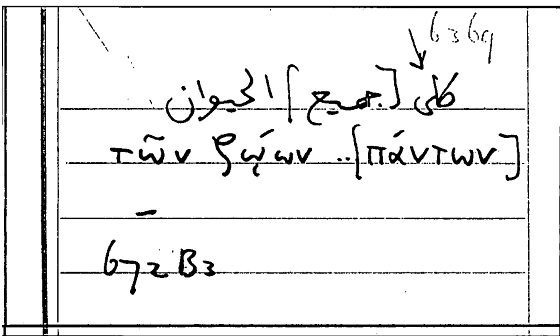 كلى [جميع] الحيوان
τῶν ζῴων ..[πάντων]
–
672 B3